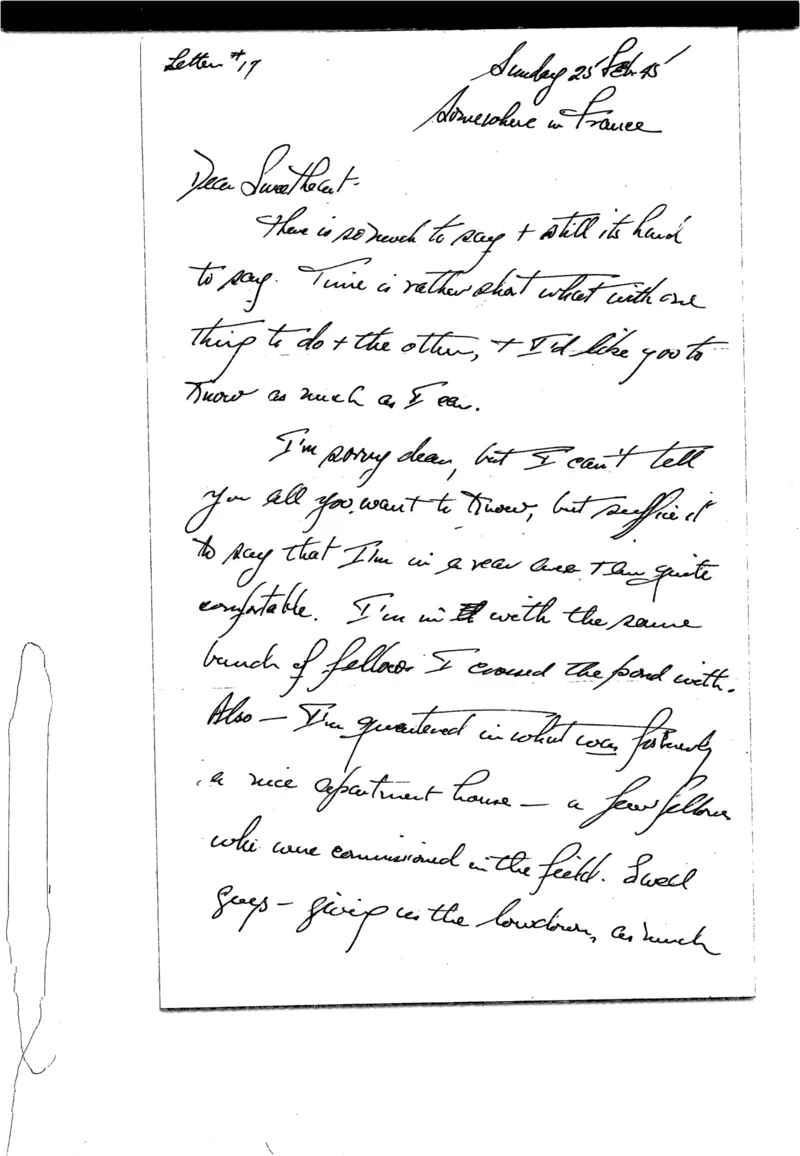 Letter #17
Sunday 25 Feb. 45
Somewhere in France
Dear Sweetheart -
There is so much to say + still its hard
to say. Time is rather short what with one
thing to do + the other, + I'd like you to
know as much as I can.
I'm sorry dear, but I can't tell
you all you want to know, but suffice it
to say that I'm in a rear area + am quite
comfortable. I'm in with the same
bunch of fellows I crossed the pond with.
Also - I'm quartered in what was formerly
a nice apartment house - a few fellows
who were commissioned in the field. Swell
guys - giving us the lowdown, as much